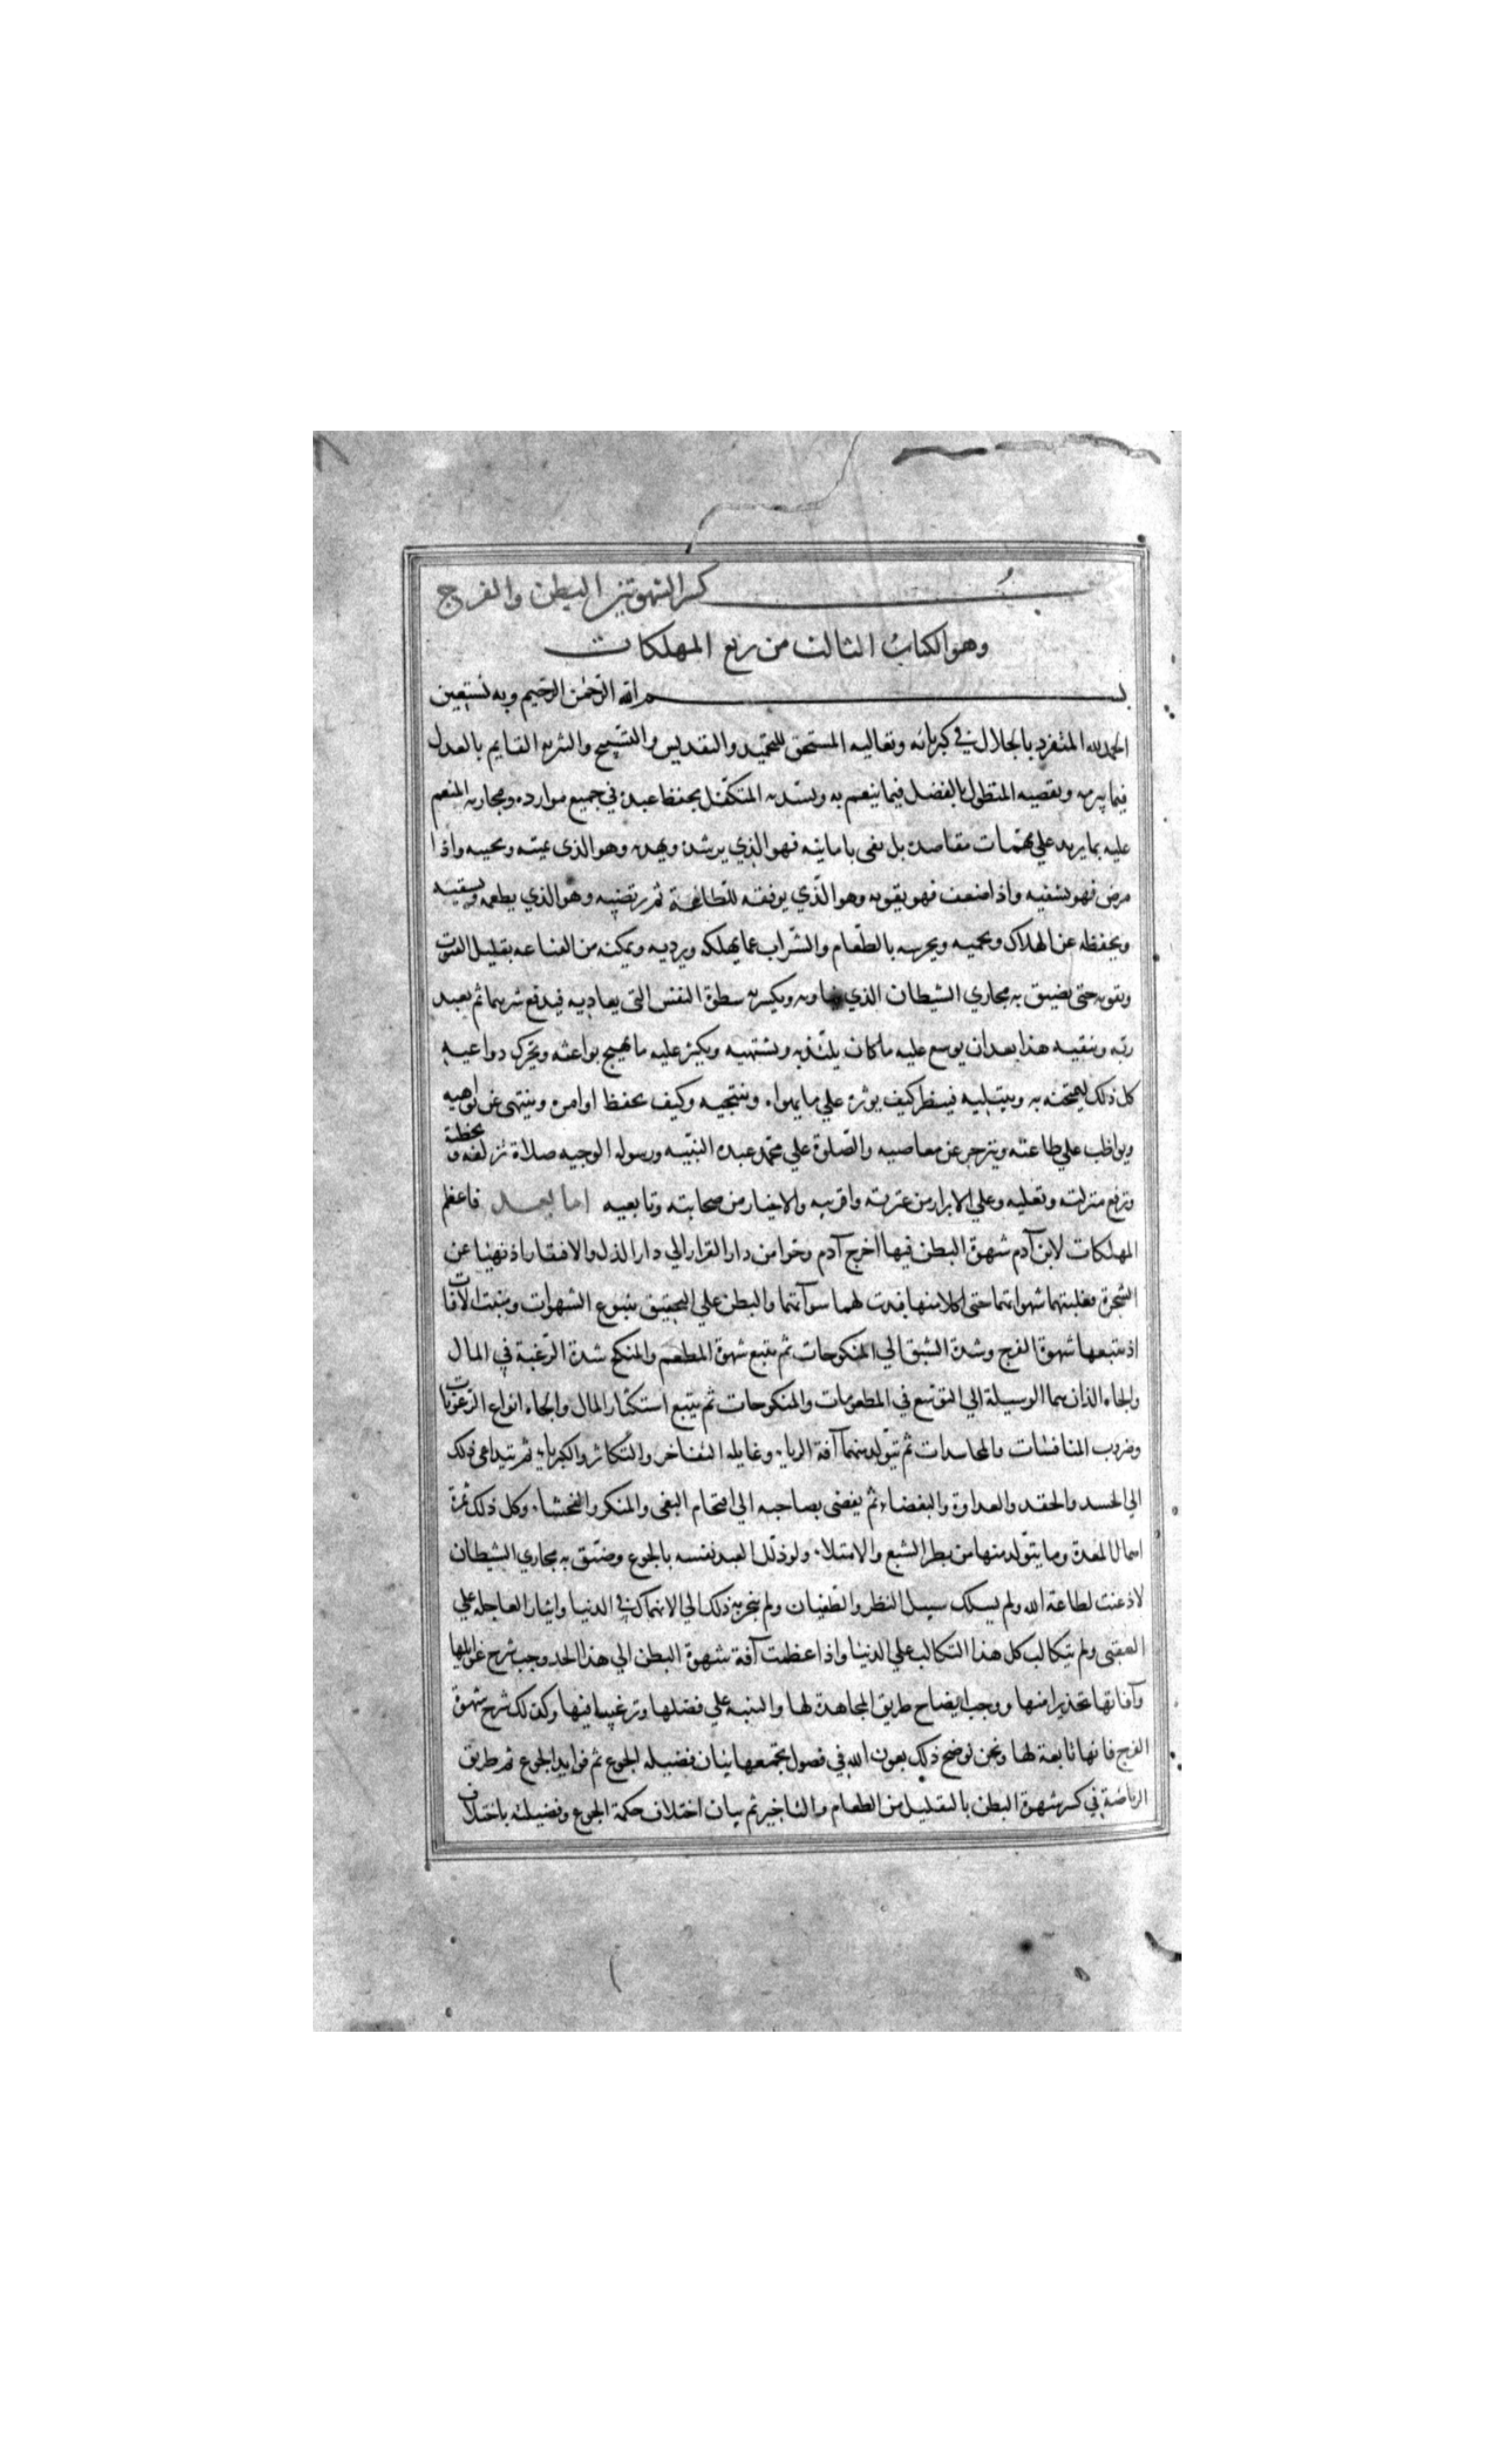 كتاب كسر الشهوتين البطن والفرج
وهو الكتاب الثالث من ربع المهلكات
بسم الله الرحمن الرحيم وبه نستعين
الحمد لله المتفرد بالجلال في كبريائه وتعاليه المستحق للتحميد والتقديس والتسبيح والتنزيه القايم بالعدل
فيما يبرمه ويقضيه المتطول بالفضل فيما ينعم به ويسديه المتكفل بحفظ عبده في جميع موارده ومجاريه المنعم
عليه بما يزيد علي مهمات مقاصده بل يفي بامانيه فهو الذي يرشده ويهديه وهو الذي يميته ويحييه واذا
مرض فهو يشفيه واذا ضعف فهو يقويه وهو الذي يوفقه للطاعة ثم يرتضيه وهو الذي يطعمه ويسقيه
ويحفظه عن الهلاك ويحميه ويحرسه بالطعام والشراب عما يهلكه ويرديه ويمكنه من القناعه بقليل القوت
ويقويه حتى يضيق به مجاري الشيطان الذي يناويه ويكسر به سطوة النفس التي يعاديه فيدفع شرهما ثم يعبد
ربه ويتقيه هذا بعد ان يوسع عليه ما كان يلتذ به ويشتهيه ويكثر عليه ما يهيج بواعثه ويحرك دواعيه
كل ذلك ليمتحنه به ويبتليه فينظر كيف يوثره علي ما يهواه وينتحيه وكيف يحفظ اوامره وينتهي عن نواهيه
ويواظب علي طاعته وينزجر عن معاصيه والصلوة علي محمد عبده النبيه ورسوله الوجيه صلاة تزلفه وتحظيه
وترفع منزلته وتعليه وعلي الابرار من عترته واقربيه والاخيار من صحابته وتابعيه اما بعد فاعظم
المهلكات لابن آدم شهوة البطن فيها اخرج آدم وحوا من دار القرار الي دار الذل والافتقار اذ نهيا عن
الشجرة فغلبتهما شهواتهما حتى اكلا منها فبدت لهما سوآتهما والبطن علي التحقيق ينبوع الشهوات ومنبت الآفات
اذ يتبعها شهوة الفرج وشدة الشبق الي المنكوحات ثم يتبع شهوة المطعم والمنكح شدة الرغبة في المال
والجاه الذان هما الوسيلة الي التوسع في المطعومات والمنكوحات ثم يتبع استكثار المال والجاه انواع الرعونات
وضروب المنافسات والمحاسدات ثم يتولد منهما آفة الريا وغايله التفاخر والتكاثر والكبرياء ثم يتداعى ذلك
الي الحسد والحقد والعداوة والبغضاء ثم يفضى بصاحبه الي اقتحام البغى والمنكر والفحشاء وكل ذلك ثمرة
اهمال المعدة وما يتولد منها من بطر الشبع والامتلاء ولو ذلل العبد نفسه بالجوع وضيق به مجاري الشيطان
لاذعنت لطاعة الله ولم يسلك سبيل النظر والطغيان ولم ينجر به ذلك الي الانهماك في الدنيا وايثار العاجله علي
العقبى ولم يتكالب كل هذا التكالب علي الدنيا واذا عظمت آفة شهوة البطن الي هذا الحد وجب شرح غوايلها
وآفاتها تحذيرا منها ووجب ايضاح طريق المجاهدة لها والتنبيه علي فضلها وترغيبا فيها وكذلك شرح شهوة
الفرج فانها تابعة لها ونحن نوضح ذلك بعون الله في فصول يجمعها بيان فضيله الجوع ثم فوايد الجوع ثم طريق
الرياضة في كسر شهوة البطن بالتقليل من الطعام والتاخير ثم بيان اختلاف حكمة الجوع وفضيلته باختلاف